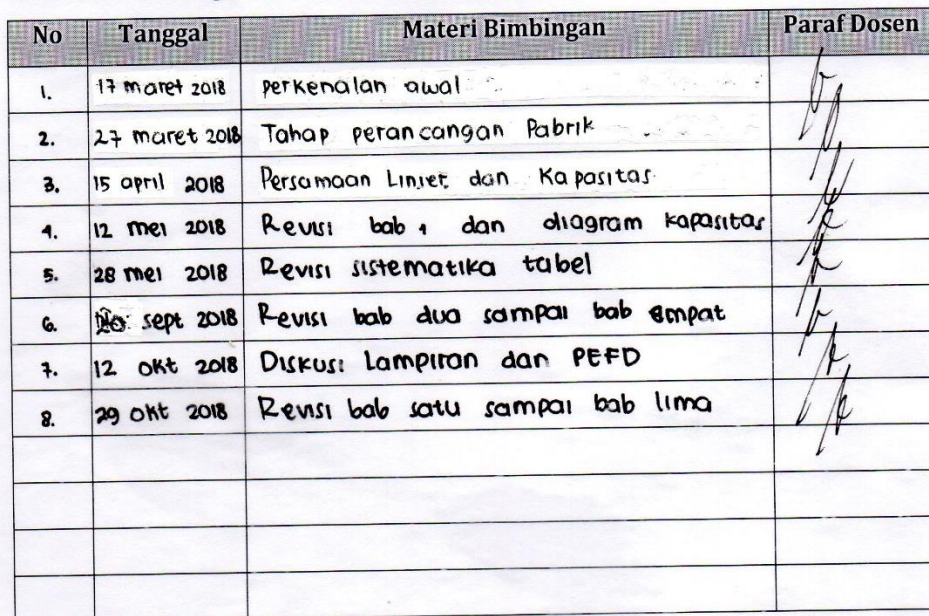 No Tanggal Materi Bimbingan Paraf Dosen
1. 17 maret 2018 perkenalan awal
2. 27 maret 2018 Tahap perancangan Pabrik
3. 15 april 2018 Persamaan Linier dan Kapasitas
4. 12 mei 2018 Revisi bab 1 dan diagram kapasitas
5. 28 mei 2018 Revisi sistematika tabel
6. sept 2018 Revisi bab dua sampai bab empat
7. 12 okt 2018 Diskusi Lampiran dan PEFD
8. 29 okt 2018 Revisi bab satu sampai bab lima